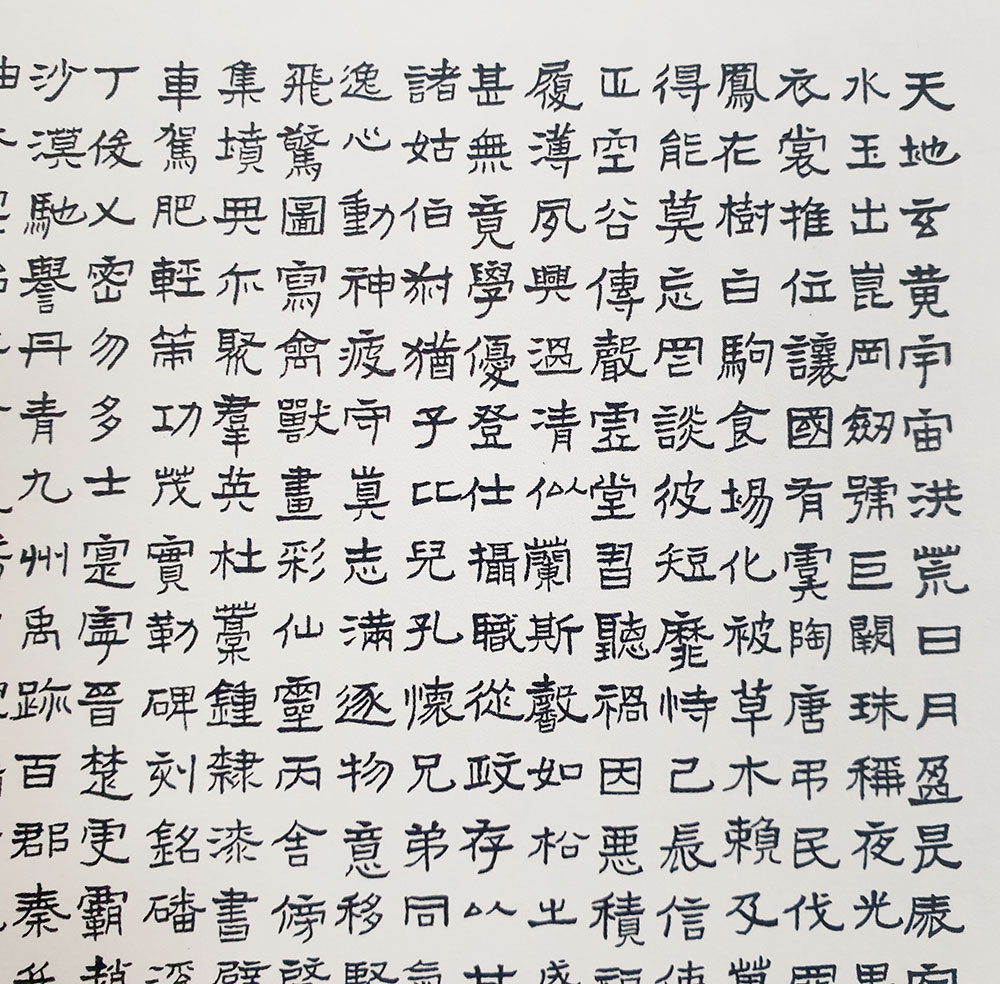 天地玄黄宇宙洪荒日月盈昃辰宿
水玉出崑岡劒號巨闕珠稱夜光果
衣裳推位讓國有虞陶唐弔民伐罪
鳳在樹白駒食場化被草木賴及萬
得能莫忘罔談彼短靡恃己長信使
正空谷傳聲虛堂習聽禍因悪積福
履薄夙興温清似蘭斯馨如松之盛
甚無竟學優登仕攝職從政存以甘
諸姑伯叔猶子比兒孔懷兄弟同氣
逸心動神疲守真志滿逐物意移堅
飛驚圖寫禽獸畫彩仙靈丙舍傍啓
集墳典亦聚羣英杜稾鍾隸漆書壁
車駕肥輕策功茂實勒碑刻銘磻溪
丁俊乂密勿多士寔寧晉楚更霸趙
沙漠馳譽丹青九州禹跡百郡秦并